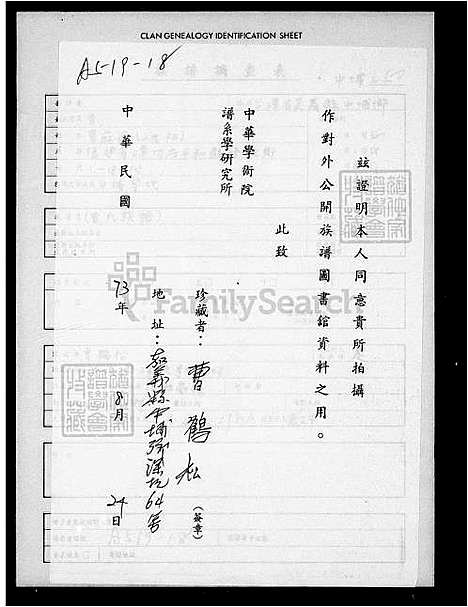 CLAN GENEALOGY IDENTIFICATION SHEET
A5-19-18
茲證明本人同意貴所拍攝
作對外公開族譜圖書館資料之用。
此致
中華學術院
譜系學研究所
珍藏者：曹鶴松（簽章）
地址：嘉義縣中埔鄉深坑64號
中華民國73年8月24日
FamilySearch